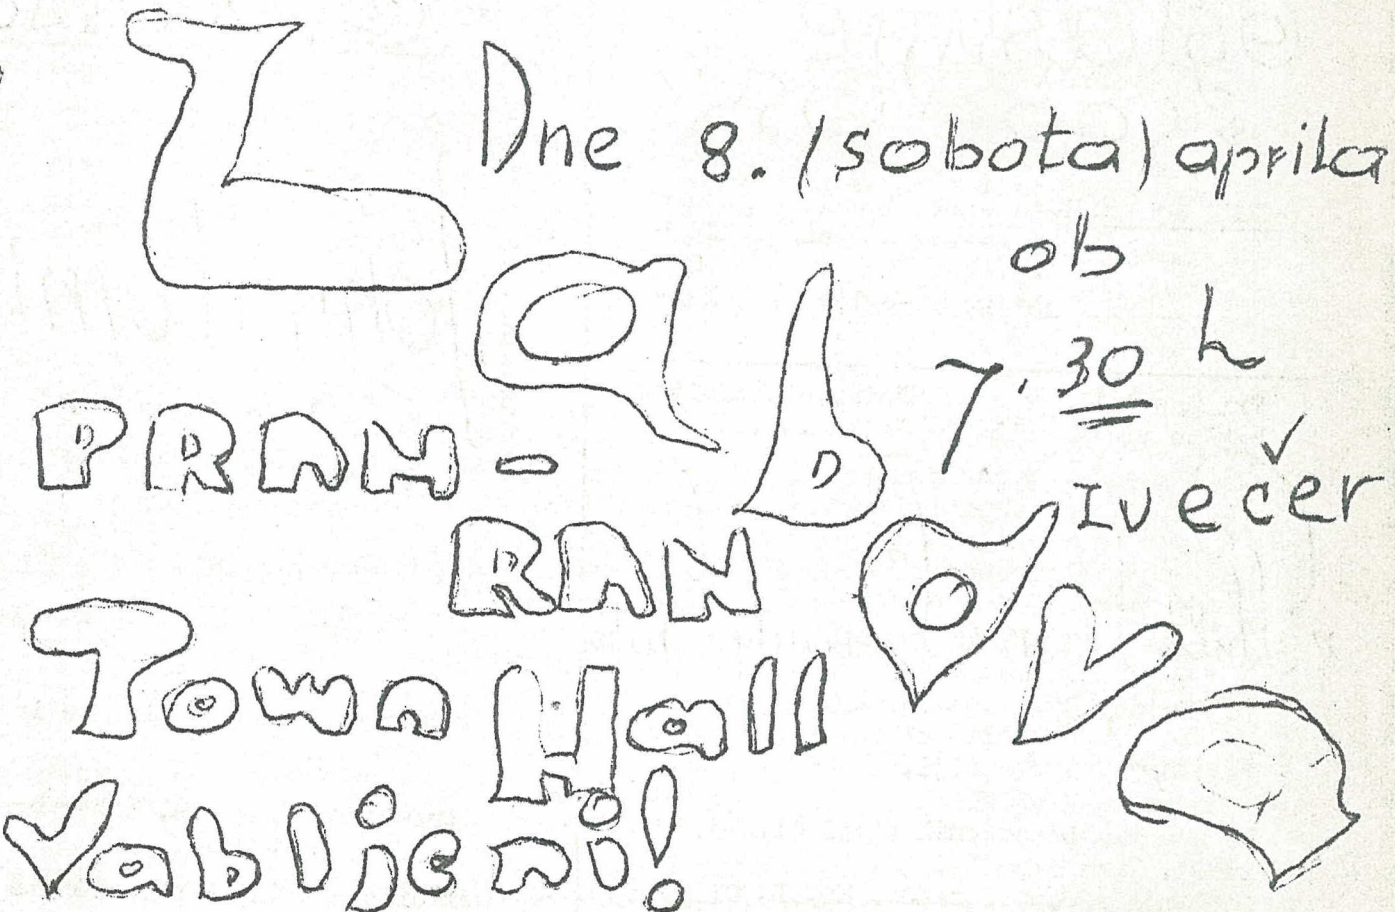 Zabava
Dne 8. (sobota) aprila
ob
7.30 h
zvečer
PRAH-
RAN
Town Hall
Vabljeni!